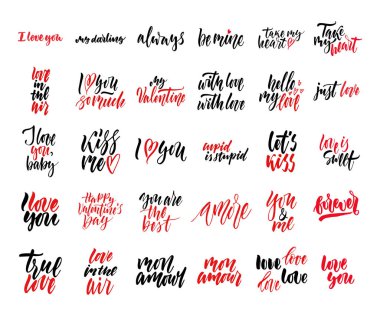 I love you
my darling
always
be mine
take my
heart
Take
my
heart
love
in
the
air
I you
so much
my
Valentine
with love
with love
hello
my love
just love
I love
you,
baby
Kiss
me
I you
cupid
is stupid
Let's
kiss
love is
sweet
I love
you
Happy
Valentine's
Day
you are
the
best
amore
You
&
me
forever
True
love
love
in the
air
mon
amour
mon
amour
love love
love love
love
you